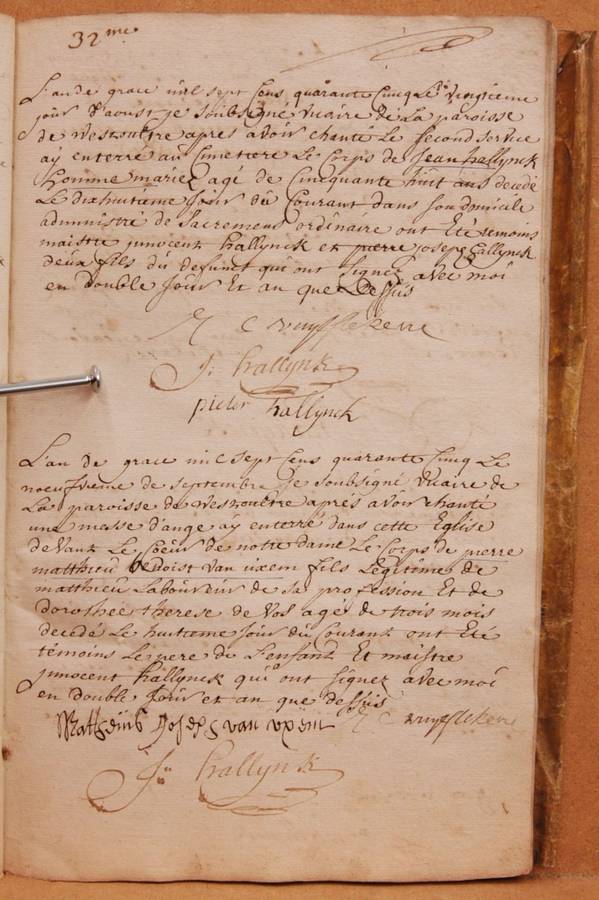 32me
L'an de grace mil sept sens quarante Cinq Le vingtieme
jour d'aoust je soubsigné vicaire de La paroisse
de westoutre après avoir chanté Le second service
ay enterré au Cimetiere Le Corps de Jean hallynck
homme mariez agé de Cinquante huit ans decedé
Le dixhuitieme Jour du Courant dans son domicile
administré de Sacremens ordinaire ont Eté temoins
maistre innocent hallynck et pierre joseph hallynck
deux fils du defunct qui ont Signez avec moi
en double Jour Et an que Dessus
J: hallynck
pieter hallynck
L'an de grace mil Sept Sens quarante Cinq Le
noeufvieme de septembre je soubsigné vicaire de
La paroisse de westoutre aprés avoir chanté
une messe d'ange ay enterré dans cette Eglise
devant Le Coeur de notre dame Le Corps de pierre
matthieu benoist van uxem fils Legitime de
matthieu Laboureur de sa profession Et de
dorothée therese de Vos agé de trois mois
decedé Le huitieme Jour du Courant ont Eté
témoins Le pere de L'enfant Et maistre
innocent hallynck qui ont signez avec moi
en double Jour et an que dessus
Matheüs Joseph van vxem
J: hallynck